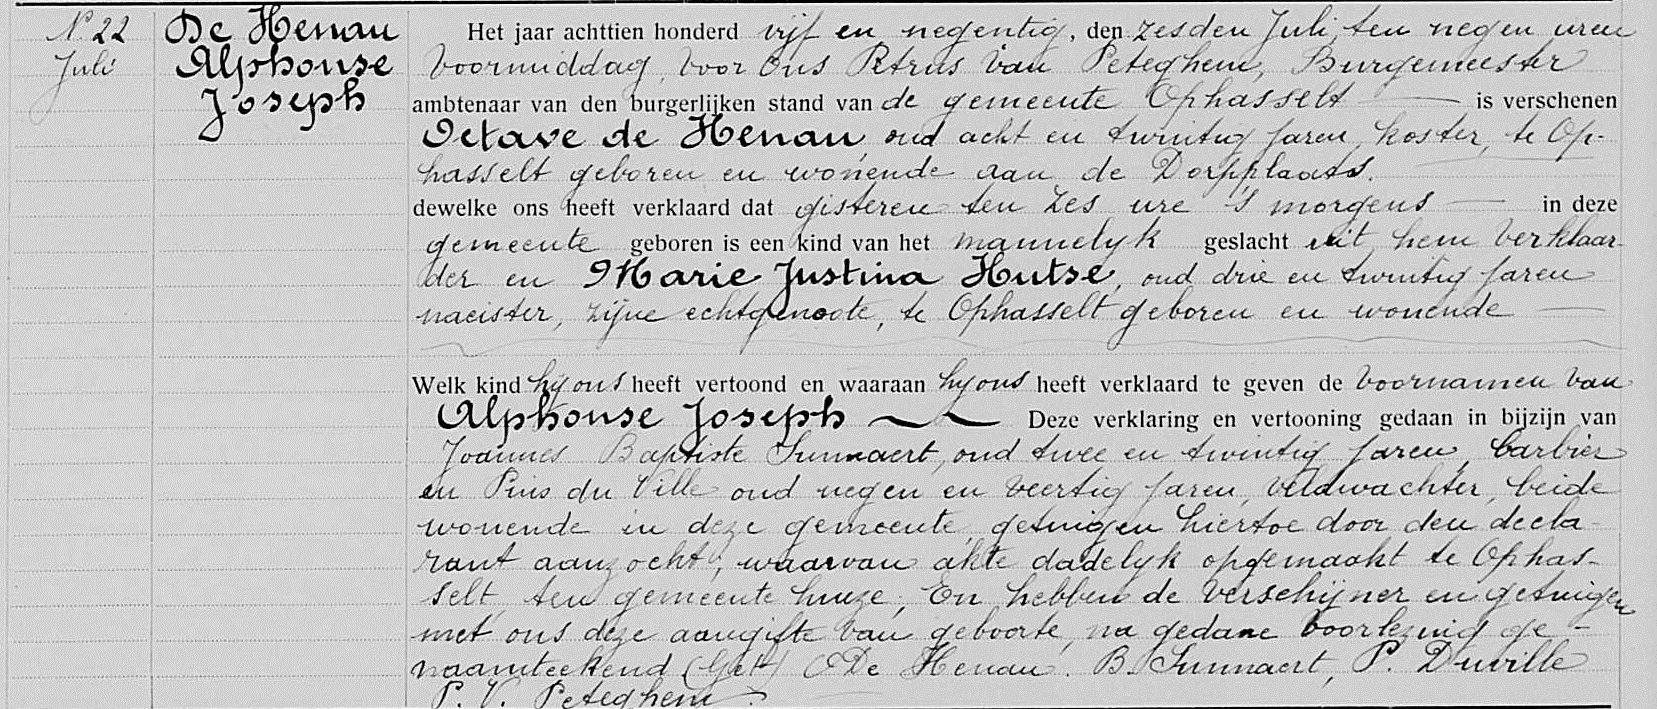 N. 22
Juli
De Henau
Alphonse
Joseph
Het jaar achttien honderd vijf en negentig, den zesden Juli, ten negen uren
Voormiddag, Voor Ons Petrus Van Peteghem, Burgemeester
ambtenaar van den burgerlijken stand van de gemeente Ophasselt — is verschenen
Octave de Henau, oud acht en twintig Jaren, koster, te Op-
hasselt geboren en wonende aan de Dorpplaats.
dewelke ons heeft verklaard dat gisteren ten zes ure 's morgens — in deze
gemeente geboren is een kind van het mannelyk geslacht uit hem Verklaar-
der en Marie Justina Hutse, oud drie en twintig Jaren
naeister, zijne echtgenoote, te Ophasselt geboren en wonende —
Welk kind hij ons heeft vertoond en waaraan hij ons heeft verklaard te geven de Voornamen Van
Alphonse Joseph — Deze verklaring en vertooning gedaan in bijzijn van
Joannes Baptiste Sunnaert, oud twee en twintig Jaren, barbier
en Pius du Ville oud negen en Veertig Jaren, Veldwachter, beide
wonende in deze gemeente, getuigen hiertoe door den decla-
rant aanzocht, waarvan akte dadelyk opgemaakt te Ophas-
selt, ten gemeente huize; En hebben de Verschijner en getuigen
met ons deze aangifte Van geboorte, na gedane Voorlezing ge-
naamteekend (Get) O De Henau. B. Sunnaert, P. Duville
P. V. Peteghem.